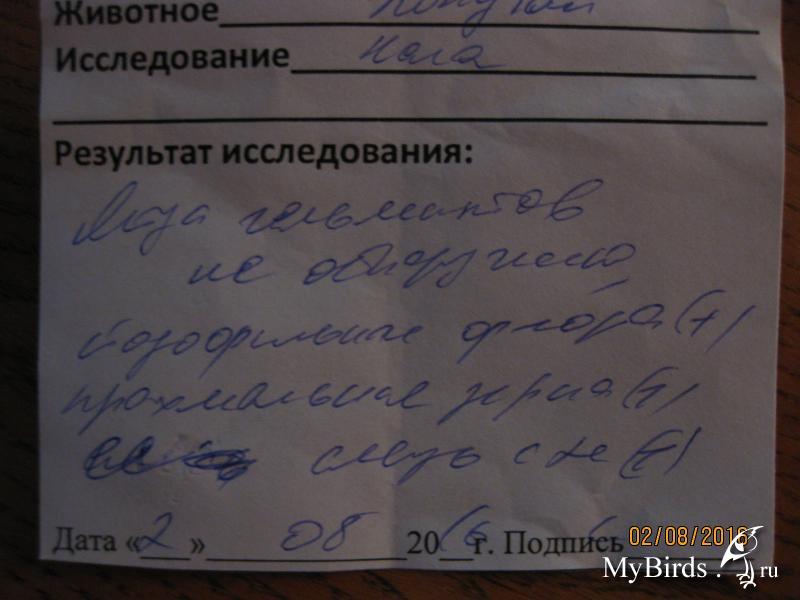 Животное Попугай
Исследование Кала
Результат исследования:
Яйца гельминтов
не обнаружено
йодофильные флора (+)
крахмальные зерна (+)
слизь
Дата «2» 08 2016 г. Подпись
02/08/2016
MyBirds.ru